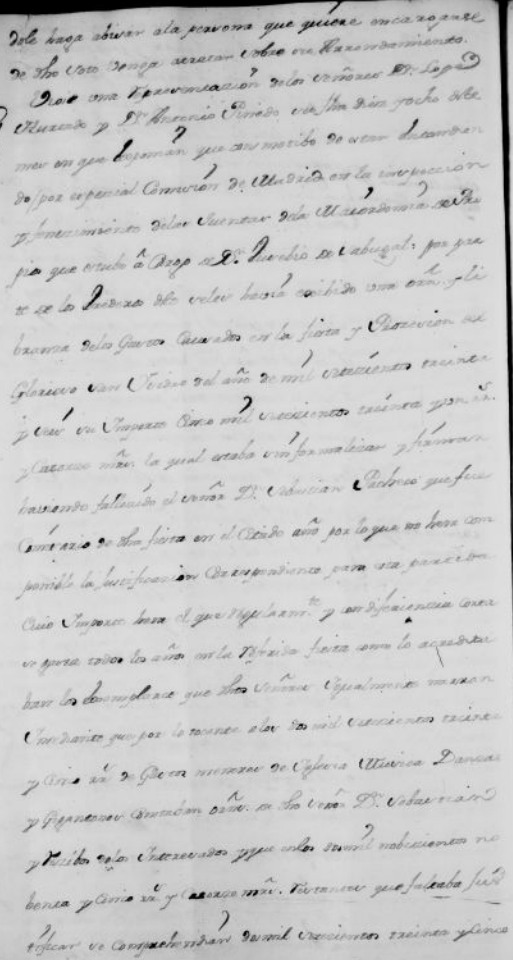 dole haga abisar ala persona que quiere encargarse
de dho Soto Venga atratar sobre su Arrendamiento.
Viose una Representazion delos Señores Dn. Lope
Hurtado y Dn. Antonio Pinedo su fha diez y ocho deste
mes en que esponian que con motibo de estar entendien
do, por especial Comision de Madrid en la inspeccion
y fenecimiento delas Quentas dela Maiordomia de Pro
pios que estubo à Cargo de Dn. Aurelio de Cabugal: por par
te de los herederos deste Señor havia recibido una orn. y li
branza delos Gastos Causados en la fiesta y Prozesion del
Glorioso San Ysidro del año de mil setecientos treinta
y seis su Importe Cinco mil setecientos treinta y un rs.
y Catorze mrs. la qual estaba sin formalizar y firmar
haviendo fallecido el señor Dn. Sebastian Pacheco que fue
Comisario de dha fiesta en el Citado año por lo que no hera com
ponible la Justificacion Correspondiente para esta partida
Cuio Importe hera el que regularmte. y con diferiencia corta
se gasta todos los años en la referida fiesta como lo acredita
ban los exemplares que dhos Señores Igualmente
Y mediante que por lo tocante a los dos mil setecientos treinta
y Cinco rs. de Gastos menores de Yglesia Musica Danzas
y Gigantones Constaban orns. de dho señor Dn. Sebastian
y Recibos delos Interesados y que enlos dosmil nobecientos no
benta y Cinco rs. y Catorze mrs. Restantes que faltaba Jus
tificar se Comprehendian dosmil setecientos treinta y Cinco